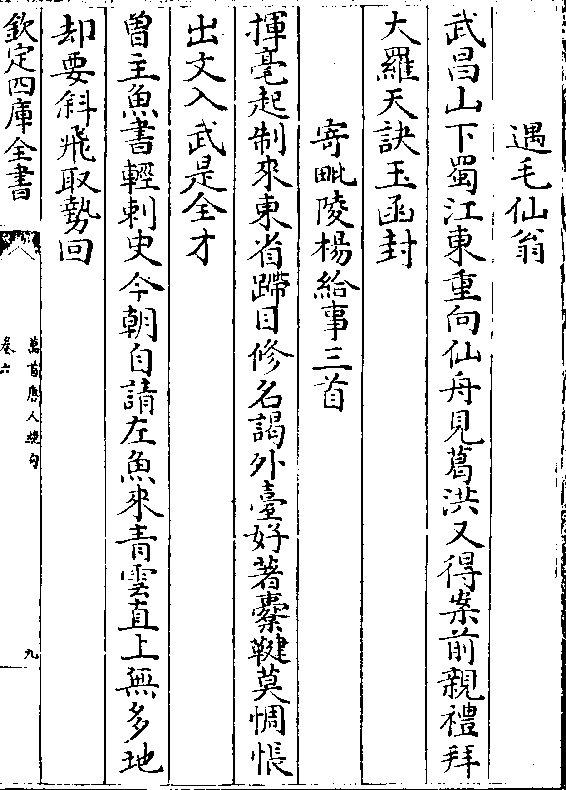 遇毛仙翁
武昌山下蜀江東重向仙舟見葛洪又得案前親禮拜
大羅天訣玉函封
寄毗陵楊給事三首
揮毫起制來東省躡足修名謁外臺好著櫜鞬莫惆悵
出文入武是全才
曾主魚書輕刺史今朝自請左魚來青雲直上無多地
却要斜飛取勢回
欽定四庫全書
萬首唐人絶句
卷六
九